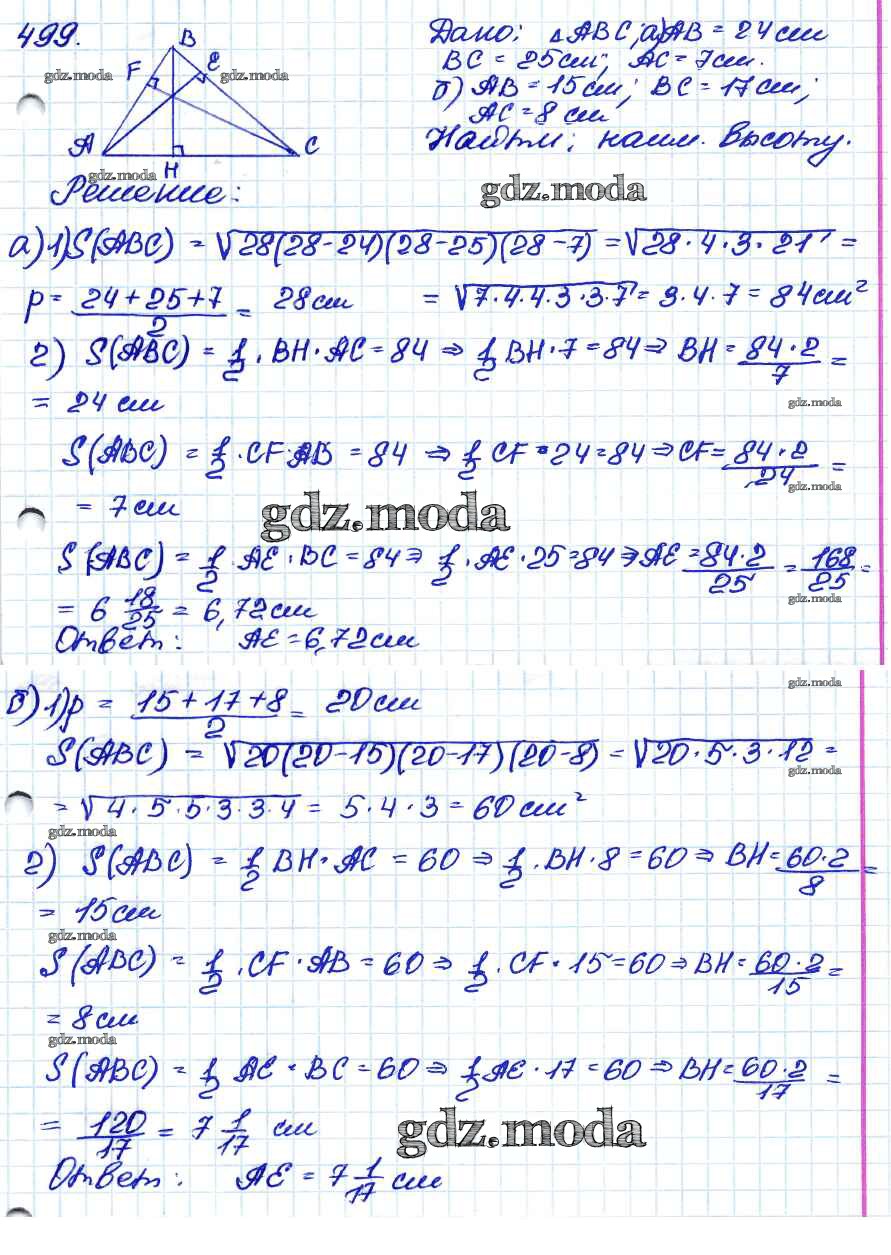 499.
B
F
E
A
H
C
gdz.moda
gdz.moda
gdz.moda
Дано: △ABC; а) AB = 24 см
BC = 25 см; AC = 7 см.
б) AB = 15 см; BC = 17 см;
AC = 8 см
Найти: наим. высоту.
Решение:
gdz.moda
а) 1) S(ABC) = √28(28-24)(28-25)(28-7) = √28·4·3·21 =
p = (24+25+7)/2 = 28 см = √7·4·4·3·3·7 = 3·4·7 = 84 см²
2) S(ABC) = 1/2 · BH · AC = 84 ⇒ 1/2 BH · 7 = 84 ⇒ BH = 84·2/7 =
= 24 см
gdz.moda
S(ABC) = 1/2 · CF · AB = 84 ⇒ 1/2 CF · 24 = 84 ⇒ CF = 84·2/24 =
gdz.moda
= 7 см
gdz.moda
S(ABC) = 1/2 · AE · BC = 84 ⇒ 1/2 · AE · 25 = 84 ⇒ AE = 84·2/25 = 168/25 =
gdz.moda
= 6 18/25 = 6,72 см
Ответ: AE = 6,72 см
gdz.moda
б) 1) p = (15+17+8)/2 = 20 см
S(ABC) = √20(20-15)(20-17)(20-8) = √20·5·3·12 =
gdz.moda
= √4·5·5·3·3·4 = 5·4·3 = 60 см²
gdz.moda
2) S(ABC) = 1/2 BH · AC = 60 ⇒ 1/2 · BH · 8 = 60 ⇒ BH = 60·2/8 =
= 15 см
gdz.moda
S(ABC) = 1/2 · CF · AB = 60 ⇒ 1/2 · CF · 15 = 60 ⇒ BH = 60·2/15 =
= 8 см
gdz.moda
S(ABC) = 1/2 AE · BC = 60 ⇒ 1/2 AE · 17 = 60 ⇒ BH = 60·2/17 =
= 120/17 = 7 1/17 см
gdz.moda
Ответ: AE = 7 1/17 см